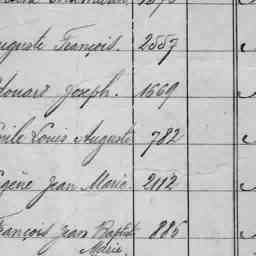 1873
uguste François. 2557
douard Joseph. 1669
mile Louis Auguste 782
ugène Jean Marie. 2112
rançois Jean Baptist 885
Marie.